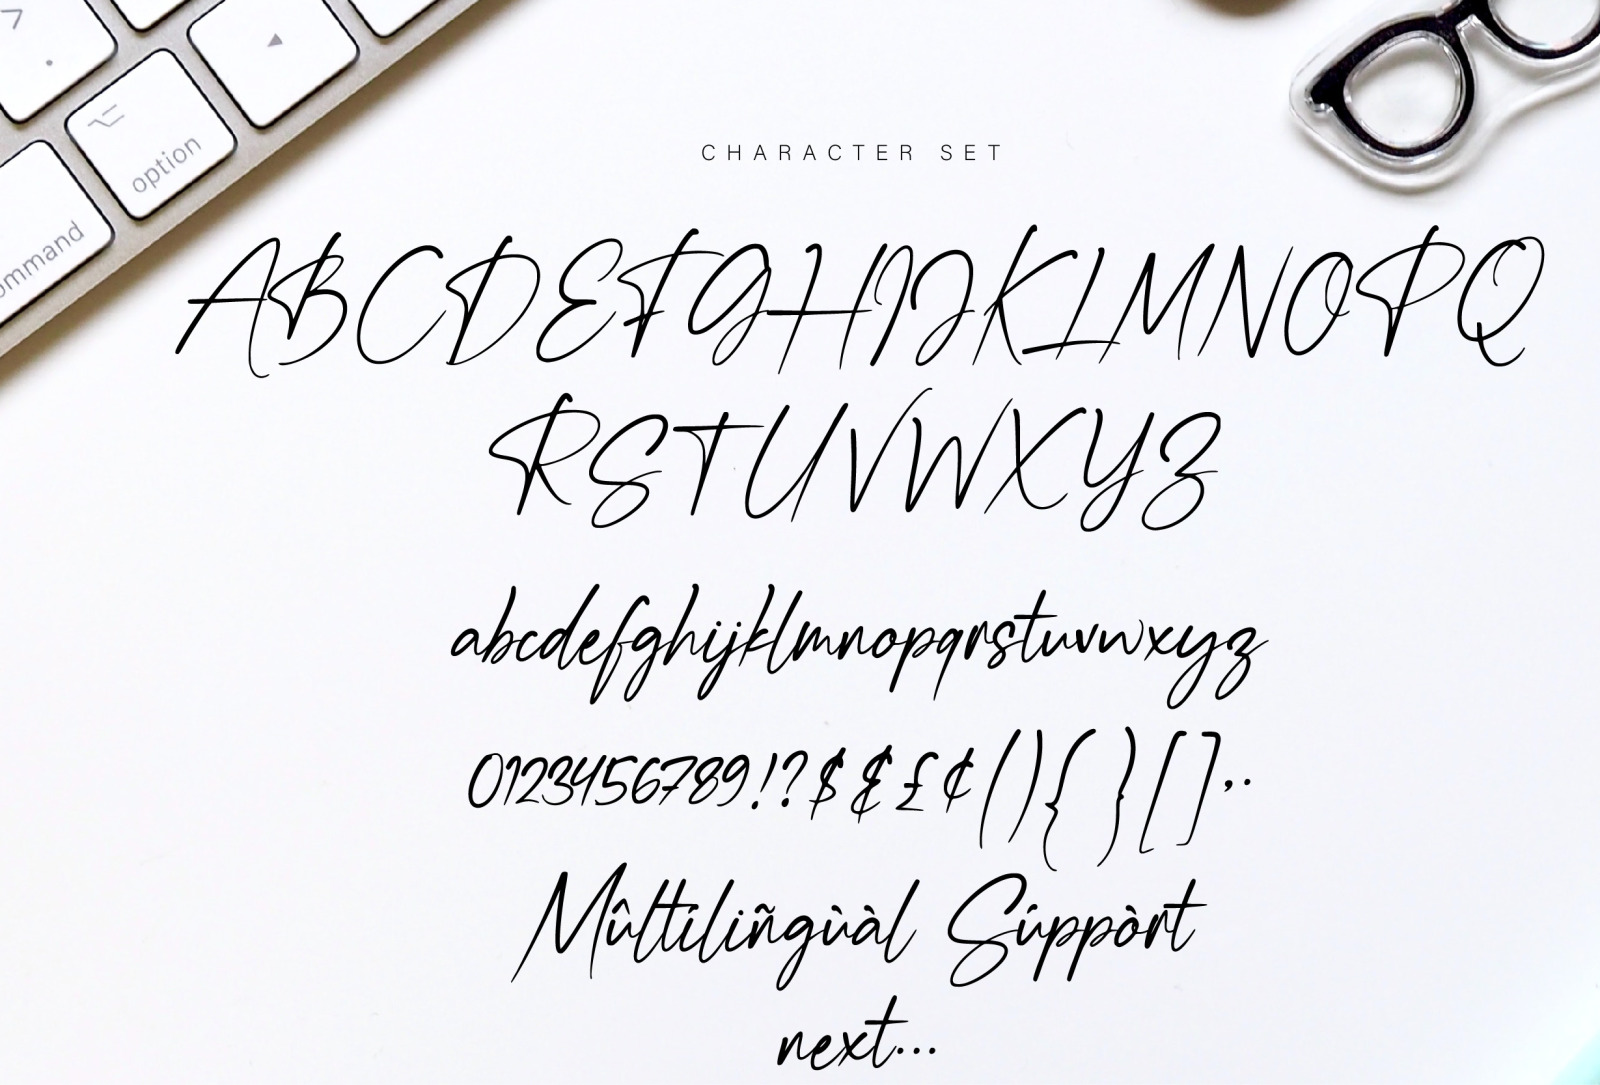 option
command
CHARACTER SET
ABCDEFGHIJKLMNOPQ
RSTUVWXYZ
abcdefghijklmnopqrstuvwxyz
0123456789!?$&£¢(){}[],.
Mûltíliñgùàl Súppòrt
next...